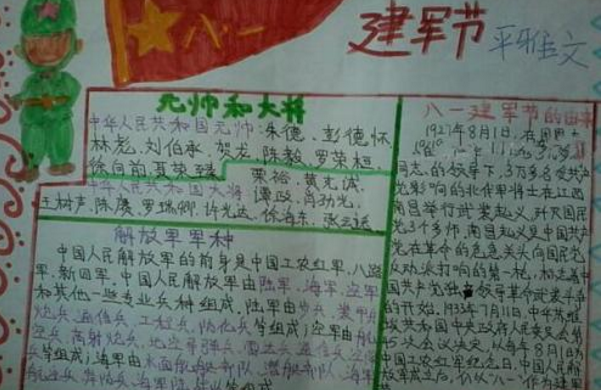 八一
建军节
平雅文
元帅和大将
中华人民共和国元帅:朱德、彭德怀
林彪、刘伯承、贺龙、陈毅、罗荣桓
徐向前、聂荣臻
中华人民共和国大将:粟裕、黄克诚、
谭政、肖劲光、
王树声、陈赓、罗瑞卿、许光达、徐海东、张云逸
解放军军种
中国人民解放军的前身是中国工农红军、八路
军、新四军。中国人民解放军由陆军、海军、空军
和其他一些专业兵种组成。陆军由步兵、装甲兵
炮兵、通信兵、工程兵、防化兵等组成;空军由航
空兵、高射炮兵、地空导弹兵、雷达兵、通信兵
兵等组成;海军由水面舰艇部队、潜艇部队、海军
八一建军节的由来
1927年8月1日,在周恩
同志的领导下,3万多名受共产
党影响的北伐军将士在江西
南昌举行武装起义,歼灭国民
党3个多师。南昌起义是中国共产
党在革命的危急关头向国民党
反动派打响的第一枪,标志着中
国共产党独立领导革命武装斗争
的开始。1933年7月11日,中华苏维
埃共和国中央政府人民委员会第
会议决议,以每年8月1日为
中国工农红军纪念日。中国人民解
放军成立后